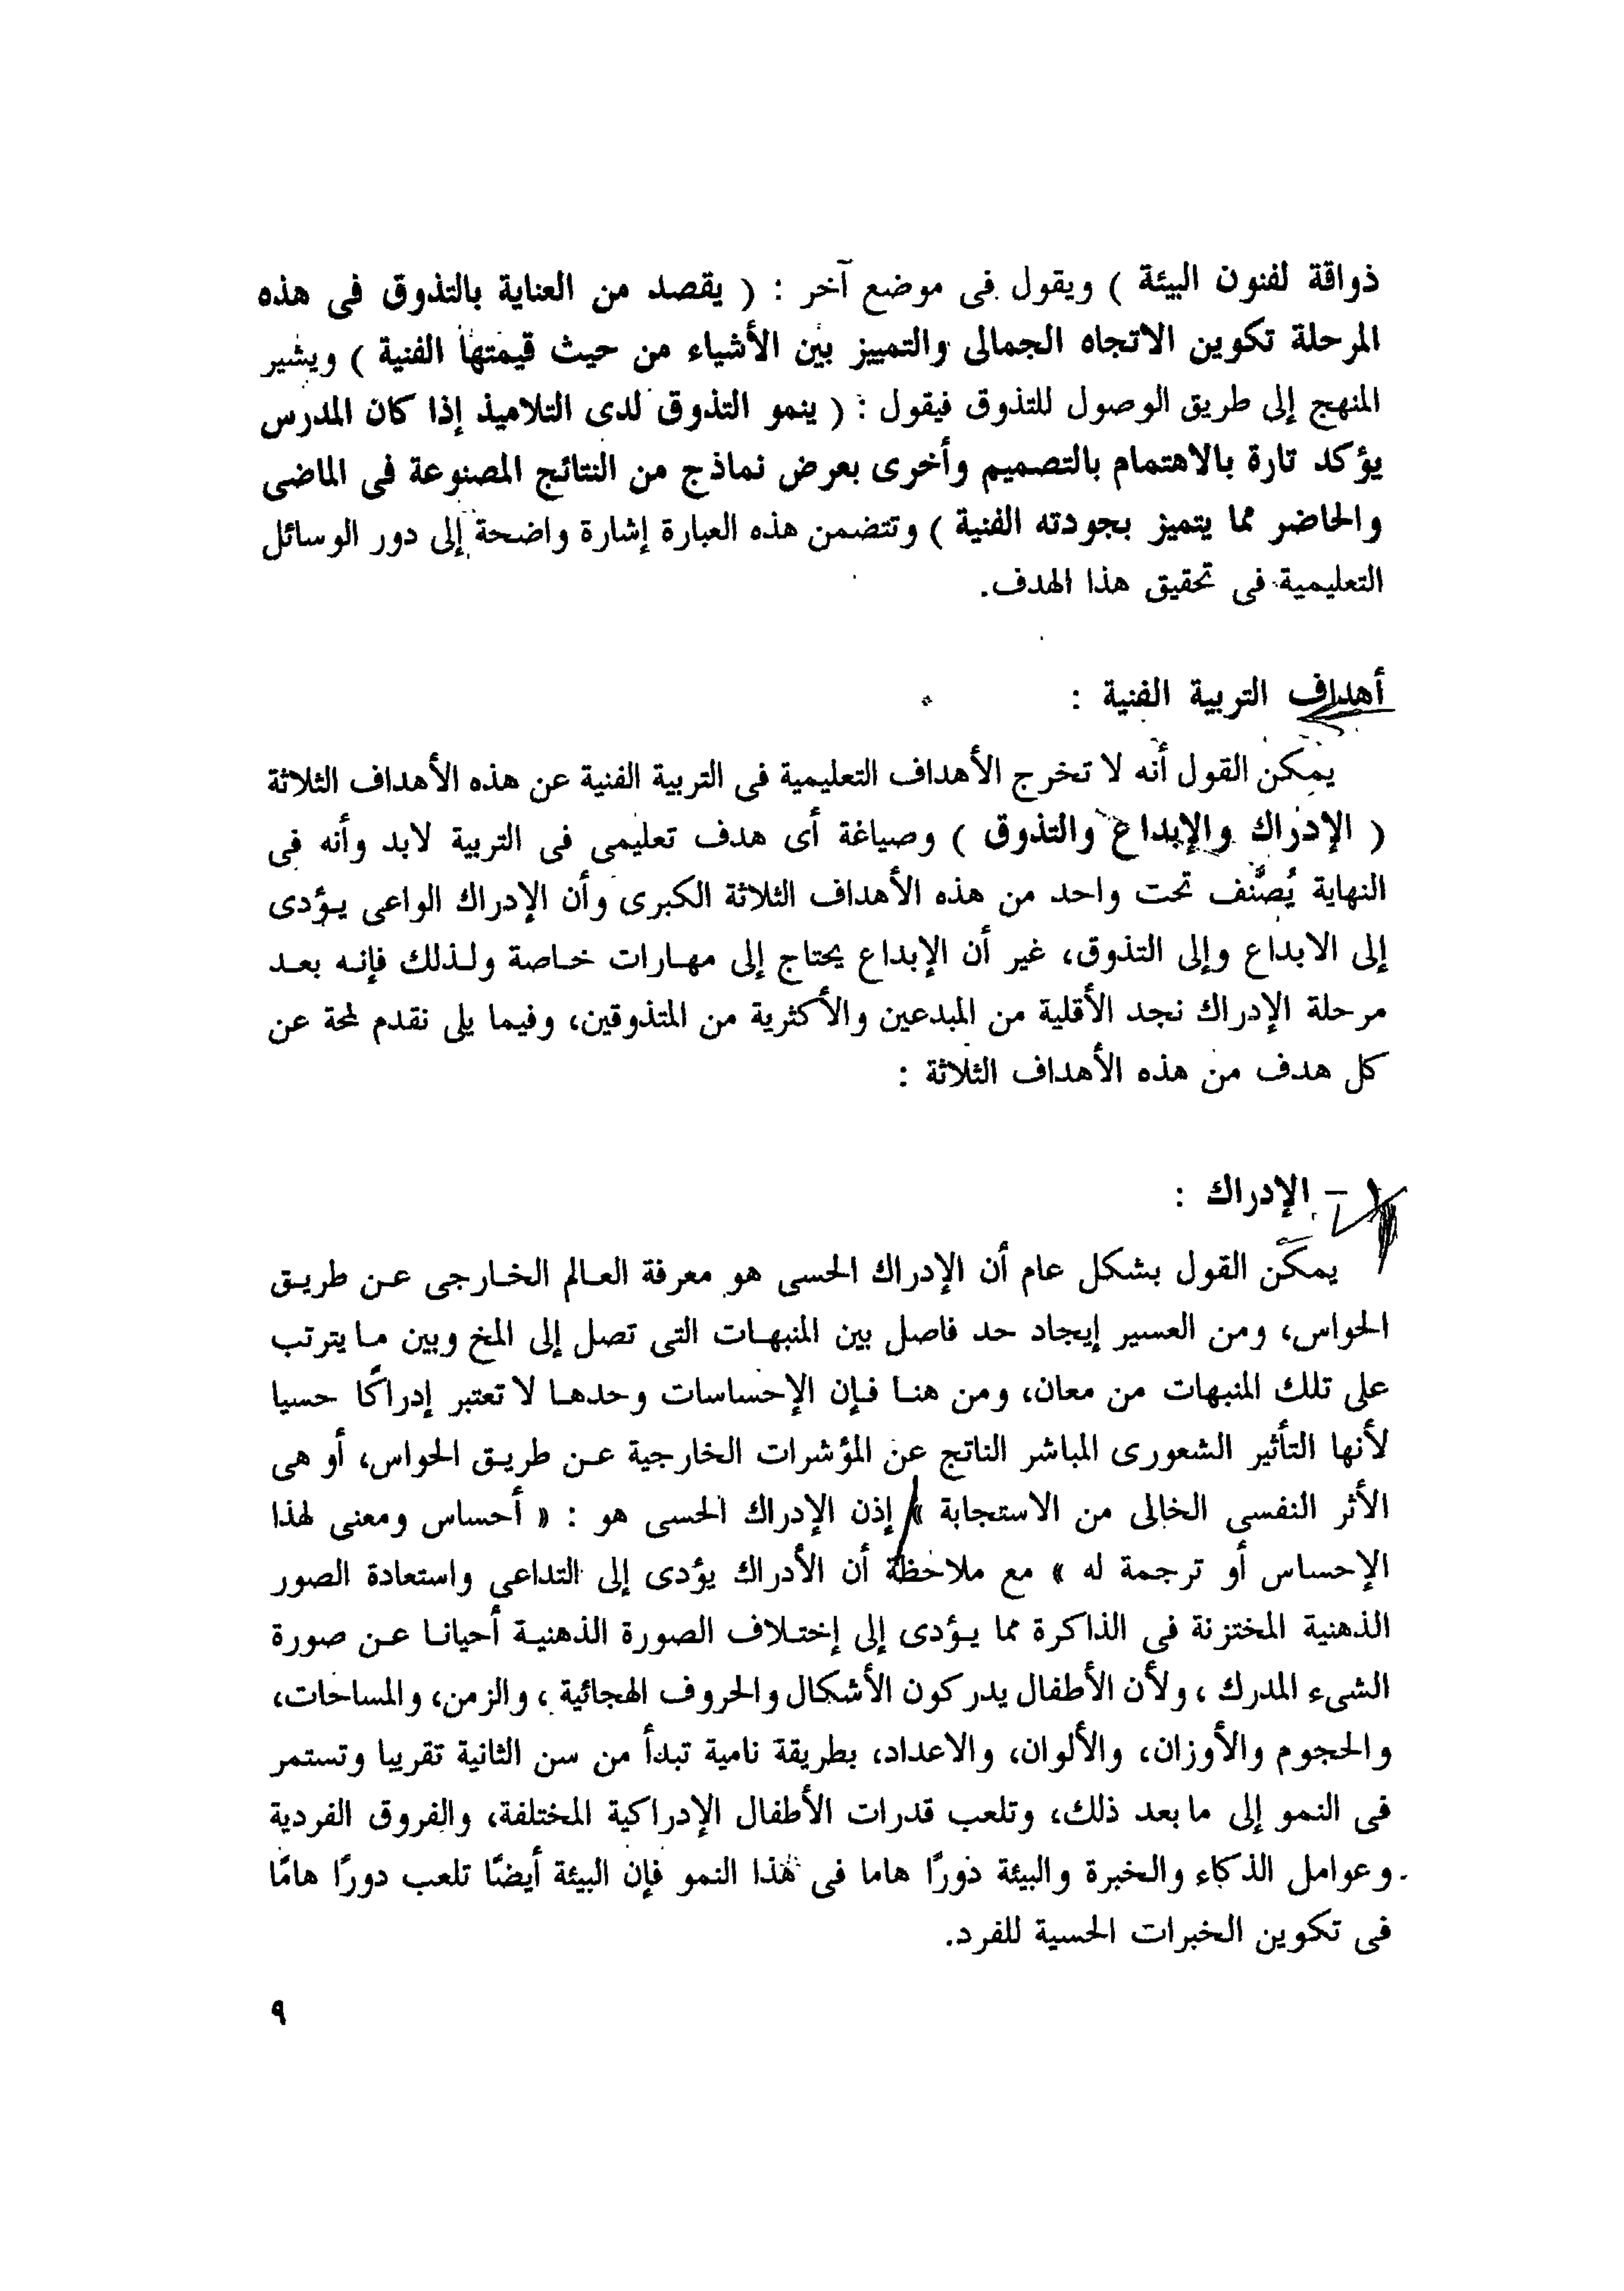 ذواقة لفنون البيئة ) ويقول فى موضع آخر : ( يقصد من العناية بالتذوق فى هذه
المرحلة تكوين الاتجاه الجمالى والتمييز بين الأشياء من حيث قيمتها الفنية ) ويشير
المنهج إلى طريق الوصول للتذوق فيقول : ( ينمو التذوق لدى التلاميذ إذا كان المدرس
يؤكد تارة بالاهتمام بالتصميم وأخرى بعرض نماذج من النتائج المصنوعة فى الماضى
والحاضر مما يتميز بجودته الفنية ) وتتضمن هذه العبارة إشارة واضحة إلى دور الوسائل
التعليمية فى تحقيق هذا الهدف.
أهداف التربية الفنية :
يمكن القول أنه لا تخرج الأهداف التعليمية فى التربية الفنية عن هذه الأهداف الثلاثة
( الإدراك والإبداع والتذوق ) وصياغة أى هدف تعليمى فى التربية لابد وأنه فى
النهاية يُصنَّف تحت واحد من هذه الأهداف الثلاثة الكبرى وأن الإدراك الواعى يـؤدى
إلى الابداع وإلى التذوق، غير أن الإبداع يحتاج إلى مهـارات خـاصة ولـذلك فإنـه بعـد
مرحلة الإدراك نجد الأقلية من المبدعين والأكثرية من المتذوقين، وفيما يلى نقدم لمحة عن
كل هدف من هذه الأهداف الثلاثة :
١ - الإدراك :
يمكن القول بشكل عام أن الإدراك الحسى هو معرفة العـالم الخـارجى عـن طريـق
الحواس، ومن العسير إيجاد حد فاصل بين المنبهـات التى تصل إلى المخ وبين مـا يترتب
على تلك المنبهات من معان، ومن هنـا فـإن الإحساسات وحدهـا لا تعتبر إدراكًا حسيا
لأنها التأثير الشعورى المباشر الناتج عن المؤشرات الخارجية عـن طريـق الحواس، أو هى
الأثر النفسى الخالى من الاستجابة » إذن الإدراك الحسى هو : « أحساس ومعنى لهذا
الإحساس أو ترجمة له » مع ملاحظة أن الأدراك يؤدى إلى التداعى واستعادة الصور
الذهنية المختزنة فى الذاكرة مما يـؤدى إلى إختـلاف الصورة الذهنيـة أحيانـا عـن صورة
الشىء المدرك ، ولأن الأطفال يدركون الأشكال والحروف الهجائية ، والزمن، والمساحات،
والحجوم والأوزان، والألوان، والاعداد، بطريقة نامية تبدأ من سن الثانية تقريبا وتستمر
فى النمو إلى ما بعد ذلك، وتلعب قدرات الأطفال الإدراكية المختلفة، والفروق الفردية
وعوامل الذكاء والخبرة والبيئة دورًا هاما فى هذا النمو فإن البيئة أيضًا تلعب دورًا هامًا
فى تكوين الخبرات الحسية للفرد.
٩